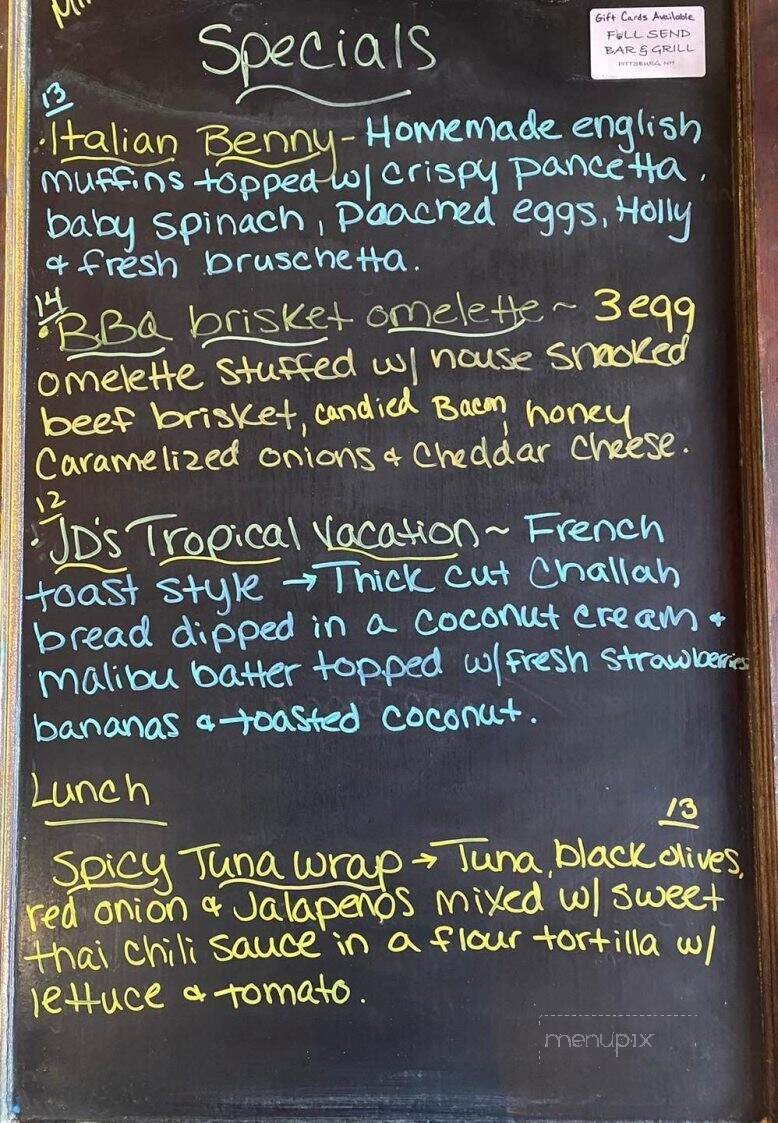 Specials
Gift Cards Available
FULL SEND
BAR & GRILL
PITTSBURG, NH
13
· Italian Benny - Homemade english
muffins topped w/ crispy pancetta,
baby spinach, poached eggs, Holly
& fresh bruschetta.
14
· BBQ brisket omelette ~ 3 egg
omelette stuffed w/ house smoked
beef brisket, candied Bacon, honey
Caramelized onions & Cheddar cheese.
12
· JD's Tropical Vacation ~ French
toast style → Thick cut Challah
bread dipped in a coconut cream &
malibu batter topped w/ fresh strawberries
bananas & toasted coconut.
Lunch
13
Spicy Tuna wrap → Tuna, black olives,
red onion & Jalapeños mixed w/ sweet
thai chili sauce in a flour tortilla w/
lettuce & tomato.
menupix